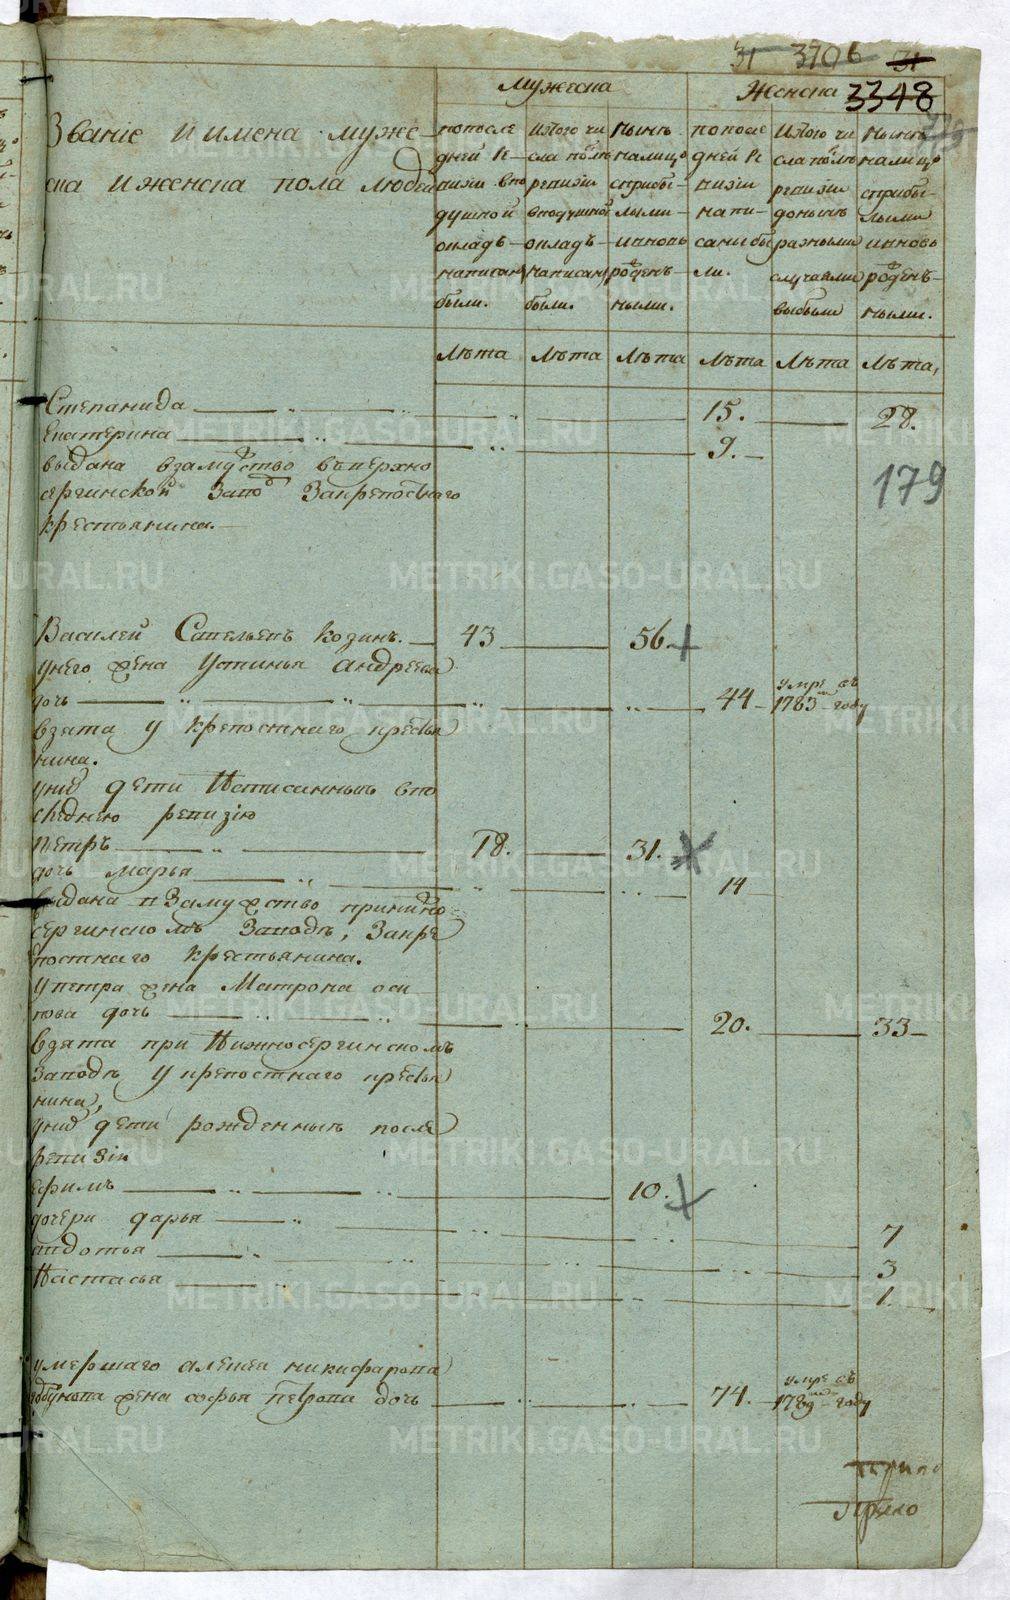 31 3706 31
3348
Мужеска Женска
Званіе и имена муже-
ска и женска пола людей
по после
дней ре-
визіи в по
душной
окладъ
написаны
были.
Изтого чи
сла по
ревизіи
вподушной
окладъ
написаны
были.
Нынѣ
налицо
сприбы-
лыми
ивновь
рожден-
ными.
по после
дней ре
визіи
напи-
саны бы
ли.
Изтого чи
сла
ревизіи
разными
случаями
выбыли
Нынѣ
налицо
сприбы-
лыми
ивновь
рожден-
ными.
Лѣта Лѣта Лѣта Лѣта Лѣта Лѣта,
Степанида 15. 28.
Екатерина 9.
выдана взамуство вверхно
сергинской завод закрепостнаго
крестьянина.
179
Василей Савельевъ Козинъ. 43 56
унего жена Устинья андреева
дочь 44 умре въ 1783м году
взята у крепостнаго крестья
нина.
уних дети написанныя впо
следнею ревизію
петръ 18. 31.
дочь марья 14
выдана в замужство при нижно
сергинскомъ заводѣ, закре
постнаго крестьянина.
у петра жена Матрона оси
пова дочь 20. 33
взята при Нижносергинскомъ
заводѣ у крепостнаго крестья
нина,
уних дети рожденныя после
ревизіи
ефимъ 10.
дочери дарья 7
авдотья 3
Настасья 1.
умершаго алексея никифарова
жена софья петрова дочь 74. умре въ 1789м году